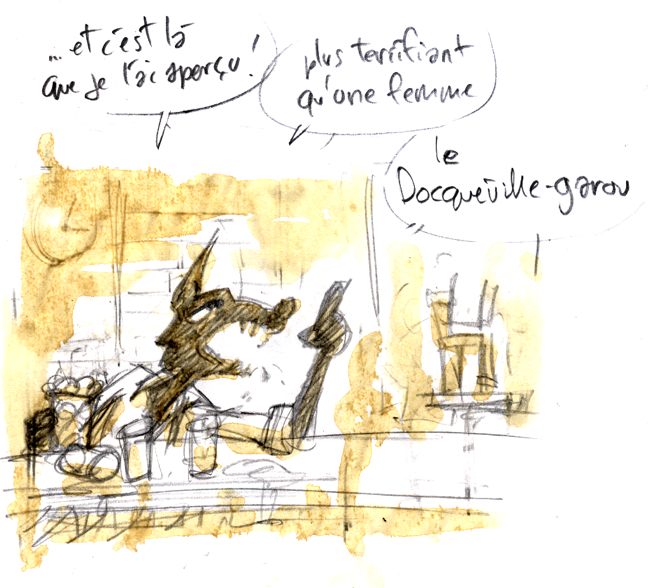 ...et c'est là
que je l'ai aperçu!
plus terrifiant
qu'une femme
le
Docqueville-garou